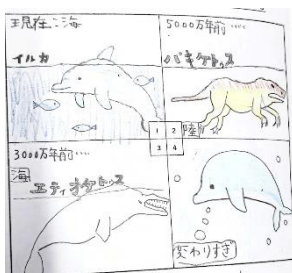 現在：海
イルカ
5000万年前‥‥
パキケトゥス
陸
1 2
3 4
3000万年前‥‥
海
エティオケトゥス
変わりすぎ